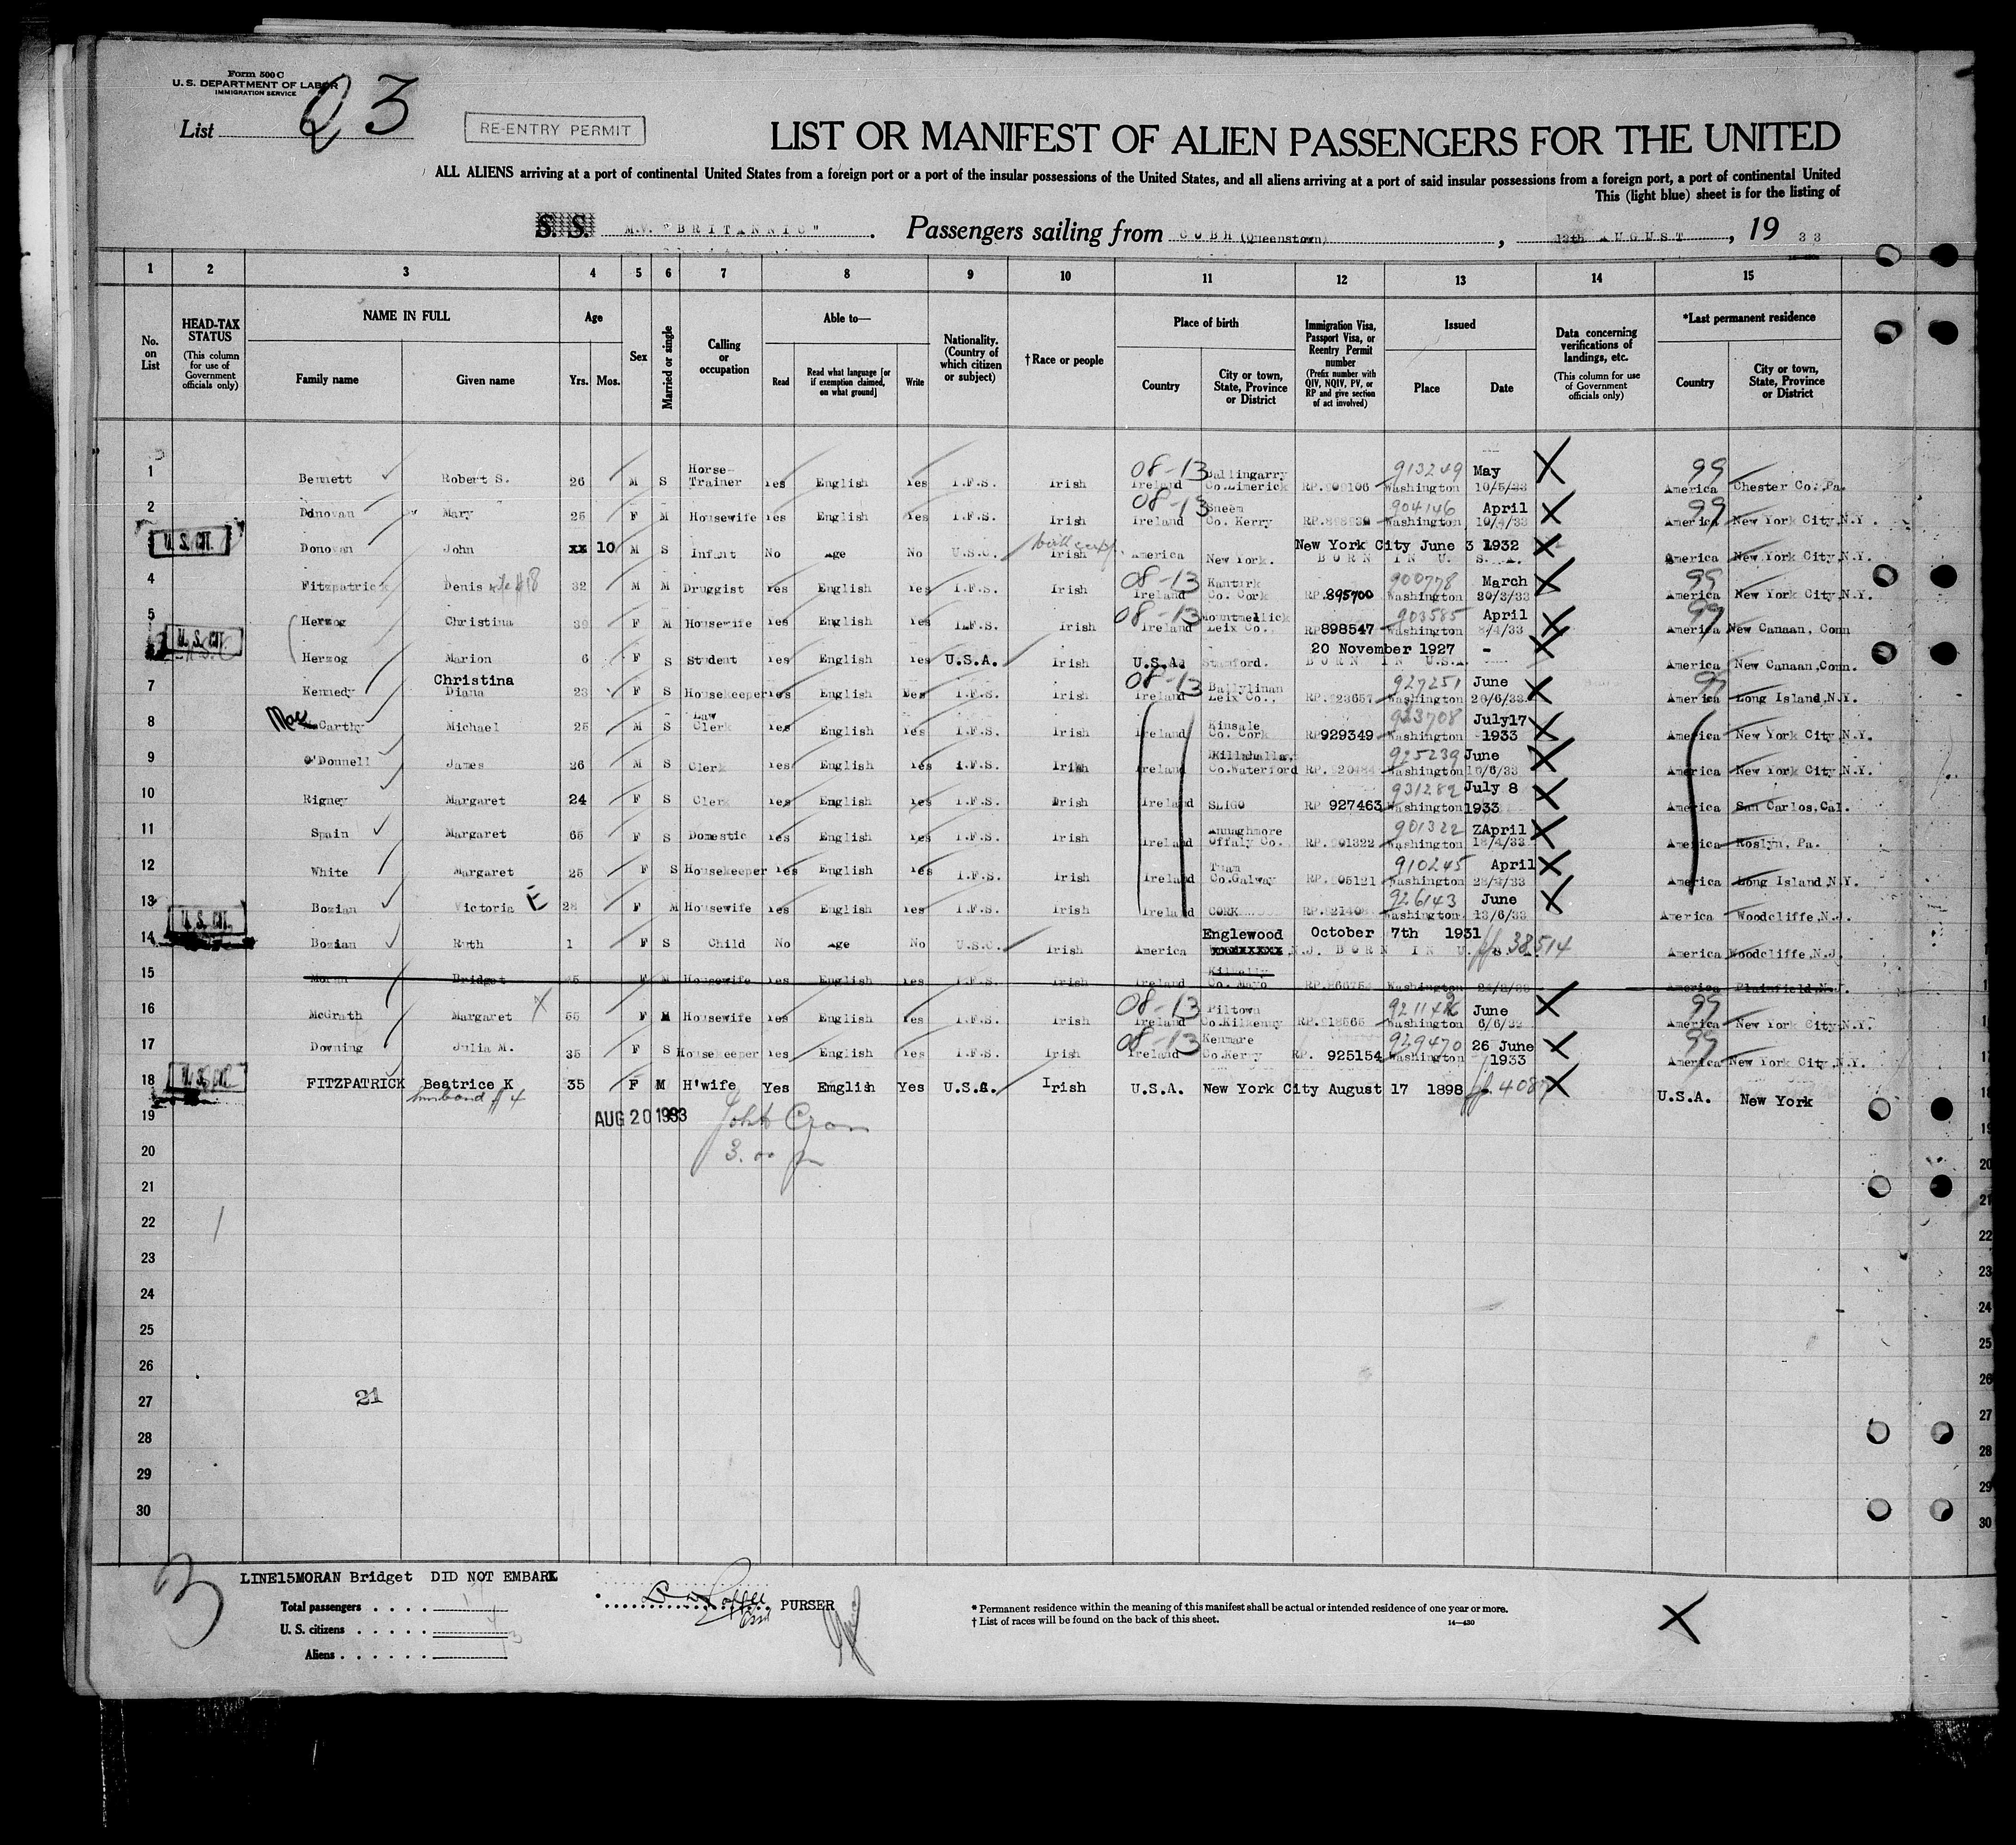 Form 500 C
U. S. DEPARTMENT OF LABOR
IMMIGRATION SERVICE
List 23
RE-ENTRY PERMIT
LIST OR MANIFEST OF ALIEN PASSENGERS FOR THE UNITED
ALL ALIENS arriving at a port of continental United States from a foreign port or a port of the insular possessions of the United States, and all aliens arriving at a port of said insular possessions from a foreign port, a port of continental United
This (light blue) sheet is for the listing of
S. S. M.V. "BRITANNIC". Passengers sailing from COBH (Queenstown), 13th AUGUST, 19 33
1 2 3 4 5 6 7 8 9 10 11 12 13 14 15
No. on List
HEAD-TAX STATUS (This column for use of Government officials only)
NAME IN FULL Family name Given name
Age Yrs. Mos.
Sex
Married or single
Calling or occupation
Able to— Read Read what language [or if exemption claimed, on what ground] Write
Nationality. (Country of which citizen or subject)
†Race or people
Place of birth Country City or town, State, Province or District
Immigration Visa, Passport Visa, or Reentry Permit number (Prefix number with QIV, NQIV, PV, or RP and give section of act involved)
Issued Place Date
Data concerning verifications of landings, etc. (This column for use of Government officials only)
*Last permanent residence Country City or town, State, Province or District
1 Bennett Robert S. 26 M S Horse-Trainer Yes English Yes I.F.S. Irish 08-13 Ireland Ballingarry Co.Limerick RP.909106 913249 Washington May 10/5/33 X 99 America Chester Co.,Pa.
2 Donovan Mary 25 F M Housewife Yes English Yes I.F.S. Irish 08-13 Ireland Sneem Co. Kerry 904146 Washington April 10/4/33 X 99 America New York City,N.Y.
U. S. CIT. Donovan John xx 10 M S Infant No Age No U.S.C. Irish America New York. New York City June 3 1932 BORN IN U. S. A. X America New York City,N.Y.
4 Fitzpatrick Denis 32 M M Druggist Yes English Yes I.F.S. Irish 08-13 Ireland Kanturk Co. Cork RP.895700 900778 Washington March 20/3/33 X 99 America New York City,N.Y.
5 Herzog Christina 39 F M Housewife Yes English Yes I.F.S. Irish 08-13 Ireland Mountmellick Leix Co., RP898547 903585 Washington April 8/4/33 X 99 America New Canaan, Conn
U. S. CIT. Herzog Marion 6 F S Student Yes English Yes U.S.A. Irish U.S.A. Stamford. 20 November 1927 - BORN IN U.S.A. X America New Canaan,Conn.
7 Kennedy Christina Diana 23 F S Housekeeper Yes English Yes I.F.S. Irish 08-13 Ireland Ballylinan Leix Co., RP.923657 927251 Washington June 20/6/33 X 99 America Long Island,N.Y.
8 MacCarthy Michael 25 M S Law Clerk Yes English Yes I.F.S. Irish Ireland Kinsale Co. Cork RP929349 933708 Washington July17 1933 X America New York City,N.Y.
9 O'Donnell James 26 M S Clerk Yes English Yes I.F.S. Irish Ireland Co.Waterford 925239 Washington June 16/6/33 X America New York City,N.Y.
10 Rigney Margaret 24 F S Clerk Yes English Yes I.F.S. Irish Ireland SLIGO RP 927463 931282 Washington July 8 1933 X America San Carlos,Cal.
11 Spain Margaret 65 F S Domestic Yes English Yes I.F.S. Irish Ireland Annaghmore Offaly Co. RP.901322 901322 Washington April 18/4/33 X America Roslyn, Pa.
12 White Margaret 25 F S Housekeeper Yes English Yes I.F.S. Irish Ireland Tuam Co.Galway RP.905121 910245 Washington April X America Long Island,N.Y.
13 Bozian Victoria E 28 F M Housewife Yes English Yes I.F.S. Irish Ireland CORK 926143 Washington June 13/6/33 X America Woodcliffe,N.J.
U. S. CIT. 14 Bozian Ruth 1 F S Child No Age No U.S.C. Irish America Englewood xxxxxxxxx,N.J. October 7th 1931 BORN IN U. S. A. 38514 America Woodcliffe,N.J.
15 Moran Bridget 45 F M Housewife Yes English Yes I.F.S. Irish Ireland Co. Mayo Washington America Plainfield,N.J.
16 McGrath Margaret 55 F M Housewife Yes English Yes I.F.S. Irish 08-13 Ireland Piltown Co.Kilkenny RP.918565 Washington June 6/6/33 X 99 America New York City,N.Y.
17 Downing Julia M. 35 F S Housekeeper Yes English Yes I.F.S. Irish 08-13 Ireland Kenmare Co.Kerry RP. 925154 929470 Washington 26 June 1933 X 99 America New York City,N.Y.
U. S. CIT. 18 FITZPATRICK Beatrice K 35 F M H'wife Yes English Yes U.S.A. Irish U.S.A. New York City August 17 1898 X U.S.A. New York
husband #4
19 AUG 20 1933 John
20 3.00
21
22
23
24
25
26
27 21
28
29
30
3 LINE15MORAN Bridget DID NOT EMBARK
Total passengers
U. S. citizens
Aliens
PURSER
* Permanent residence within the meaning of this manifest shall be actual or intended residence of one year or more.
† List of races will be found on the back of this sheet. 14—430
X